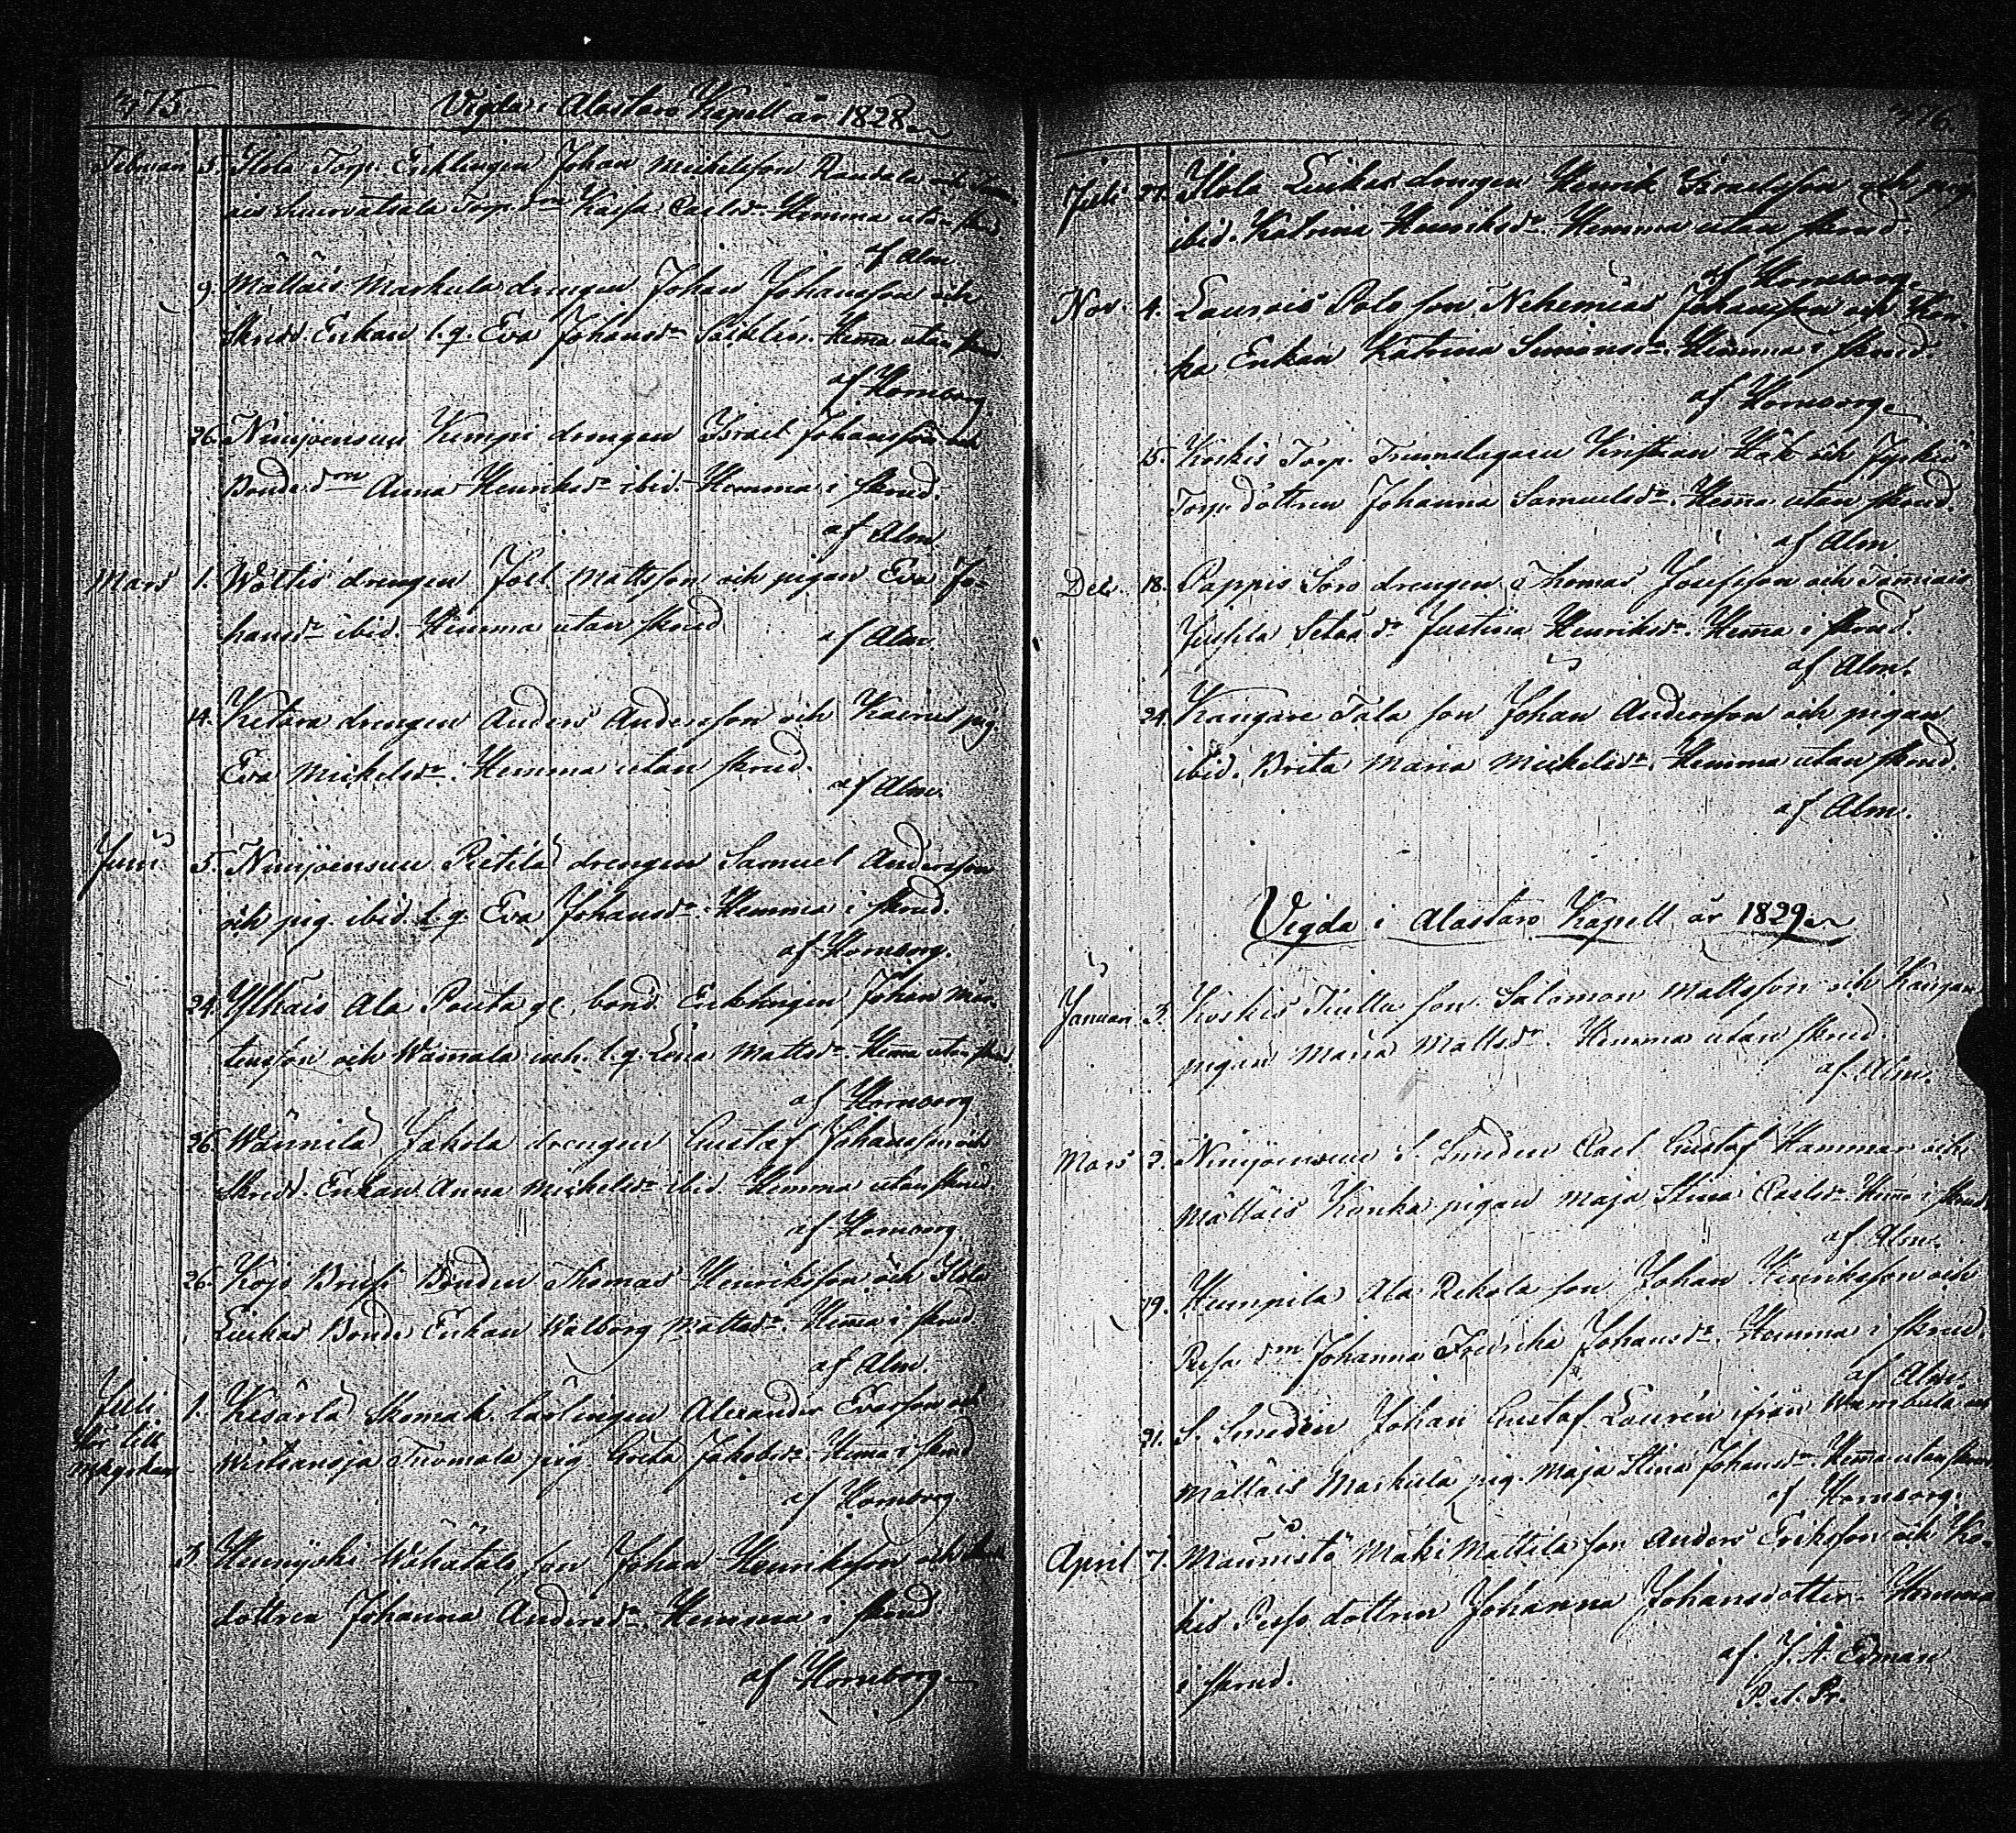 375.
Vigda i Alastaro Kapell år 1828.
Februari 3. Ilola Torp. Enklingen Johan Michelsson Randala och
Torp. dr Kaisa Carlsdr. Hemma utan skrud
af Alm
9. Mälläis Markula drengen Johan Johansson och
Skredd. Enkan l. q. Eva Johansdr Hema utan skrud
af Hornborg
26. Niinijoensuu Kemppi drengen Israel Johansson och
Bonde don Anna Henriksdr ibid. Hemma i skrud.
af Alm
Mars 1. Wälttis drengen Joel Mattsson och pigan Eva Jo-
hansdr ibid. Hemma utan skrud
af Alm.
14. Ketara drengen Anders Andersson och pig.
Eva Michelsdr. Hemma utan skrud.
af Alm.
Juni 5. Niinijoensuu Pietilä drengen Samuel Andersson
och pig. ibid. l. q. Eva Johansdr. Hemma i skrud.
af Hornborg.
24. Ylhäis Ala Pouta bond. Enklingen Johan Mår-
tensson och Wammala inh. l. q. Lena Mattsdr. Hema utan skrud.
af Hornborg
26. Wännilä Jakola drengen Gustaf Johansson och
Skredd. Enkan Anna Michelsdr ibid. Hemma utan skrud
af Hornborg.
26. Kojo Briesi Bonden Thomas Henriksson och Ilola
Luukas Bonde Enkan Walborg Mattsdr. Hema i skrud
af Alm.
Juli 1. Kesärlä Skomak. lärlingen Alexander Evasson och
Wirtsanoja Tuomola pig. Greta Jakobsdr. Hema i skrud
af Hornborg
3. Hennijoki Wähätalo son Johan Henriksson och
dottren Johanna Andersdr. Hemma i skrud
af Hornborg
376.
Juli 27. Ilola Luukas drengen Henrik Israelsson och pig.
ibid. Katrina Henriksdr. Hemma utan skrud.
af Hornborg.
Nov. 4. Laurois Polo son Nehemias Johansson och Kon-
ka Enkan Katrina Simonsdr. Hemma i skrud.
af Hornborg.
15. Koskis Torp. Trumslagaren Kristian Hök och
Torp. dottren Johanna Samuelsdr. Hema utan skrud.
af Alm.
Dec. 18. Pappis Soro drengen Thomas Josefsson och Tamiais
Jussila Setas dr Justina Henriksdr. Hema i skrud.
af Alm.
24. Kangare Tala son Johan Andersson och pigan
ibid. Brita Maria Michelsdr. Hemma utan skrud.
af Alm.
Vigda i Alastaro Kapell år 1829.
Januari 3. Koskis son Salomon Mattsson och
pigan Maria Mattsdr. Hemma utan skrud.
af Alm.
Mars 2. Niinijoensuu S. Smeden Carl Gustaf Hammar och
Mälläis Konka pigan Maja Stina Carlsdr. Hema i skrud
af Alm.
19. Hempilä Ala Rekola son Johan Henriksson och
dn Johanna Fredrika Johansdr. Hemma i skrud.
af Alm.
21. S. Smeden Johan Gustaf Laurén ifrån Wambula och
Mälläis Markula pig. Maja Stina Johansdr. Hema utan skrud
af Hornborg.
April 7. Männistö Mäki Mattila son Anders Eriksson och Ko-
skis dottren Johanna Johansdotter. Hemma
i skrud.
af. J. A. Edman